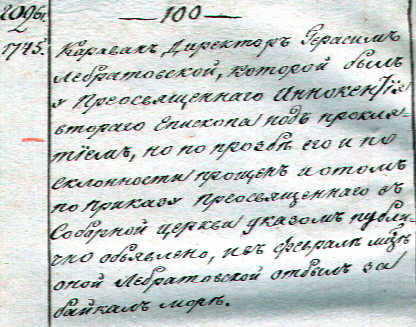 —100—
1745.
Караванъ, Директоръ Герасимъ
Лебратовской, которой былъ
у Преосвященнаго Иннокентія
втораго Епископа подъ прокля-
тіемъ, но по прозбѣ его и по
склонности прощенъ и о томъ
по приказу преосвященнаго въ
Соборной церкви указомъ публи-
чно объявлено, и въ февралѣ мцѣ
оной Лебратовской отбылъ за
байкалъ море.